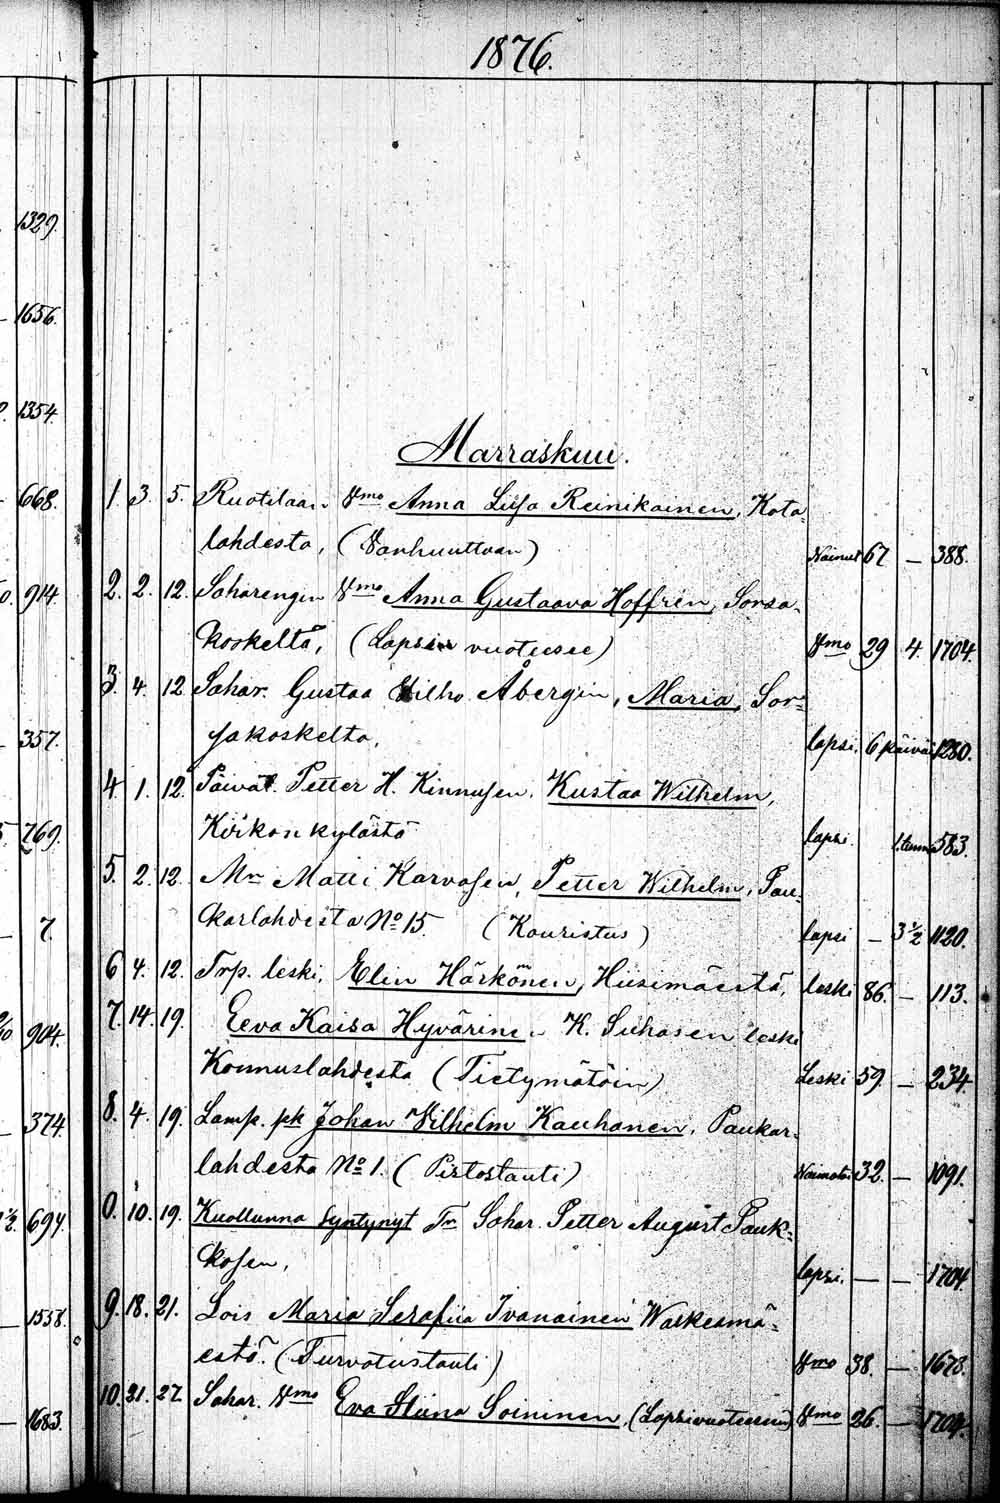 1876.
1329.
1656.
1354.
Marraskuu.
668. 1. 3. 5. Ruotulaan Vmo Anna Liisa Reinikainen, Kota-
lahdesta, (Vanhuuttaan) Nainut 67 — 388.
914. 2. 2. 12. Saharengin Vmo Anna Gustaava Hoffrén, Sorsa-
koskelta, (Lapsen vuoteesee) Vmo 29 4. 1704.
3. 4. 12. Sahar. Gustaa Wilho Åbergin, Maria, Sor-
357. sakoskelta, lapsi. 6 päivää 1280.
4 1. 12. Päivät. Petter H. Kinnusen, Kustaa Wilhelm,
769. Kirkonkylästä lapsi. 1. tunn. 583.
5. 2. 12. Mn Matti Karvosen, Petter Wilhelm, Pau-
7. karlahdesta No 15. (Kouristus) lapsi — 3½ 1120.
6 4. 12. Trp. leski, Elin Härkönen, Hiisimäestä, leski 86. — 113.
904. 7. 14. 19. Eeva Kaisa Hyvärinen K. Suhosen leski
Konnuslahdesta (Tietymätöin) Leski 59. — 234.
374. 8. 4. 19. Lamp. pk Johan Vilhelm Kauhanen, Paukar-
lahdesta No 1. (Pistostauti) Naimatoi 32. — 1091.
694 0. 10. 19. Kuollunna Syntynyt Tr Sahar. Petter August Pauk-
kosen, lapsi. — — 1704.
1558. 9. 18. 21. Lois Maria Serafiia Ivanainen Warkesmä-
estä. (Turvotustauti) Vmo 38. — 1678.
1683. 10. 21. 27 Sahar. Vmo Eva Stiina Soininen, (Lapsivuoteesen) Vmo 26. — 1704.